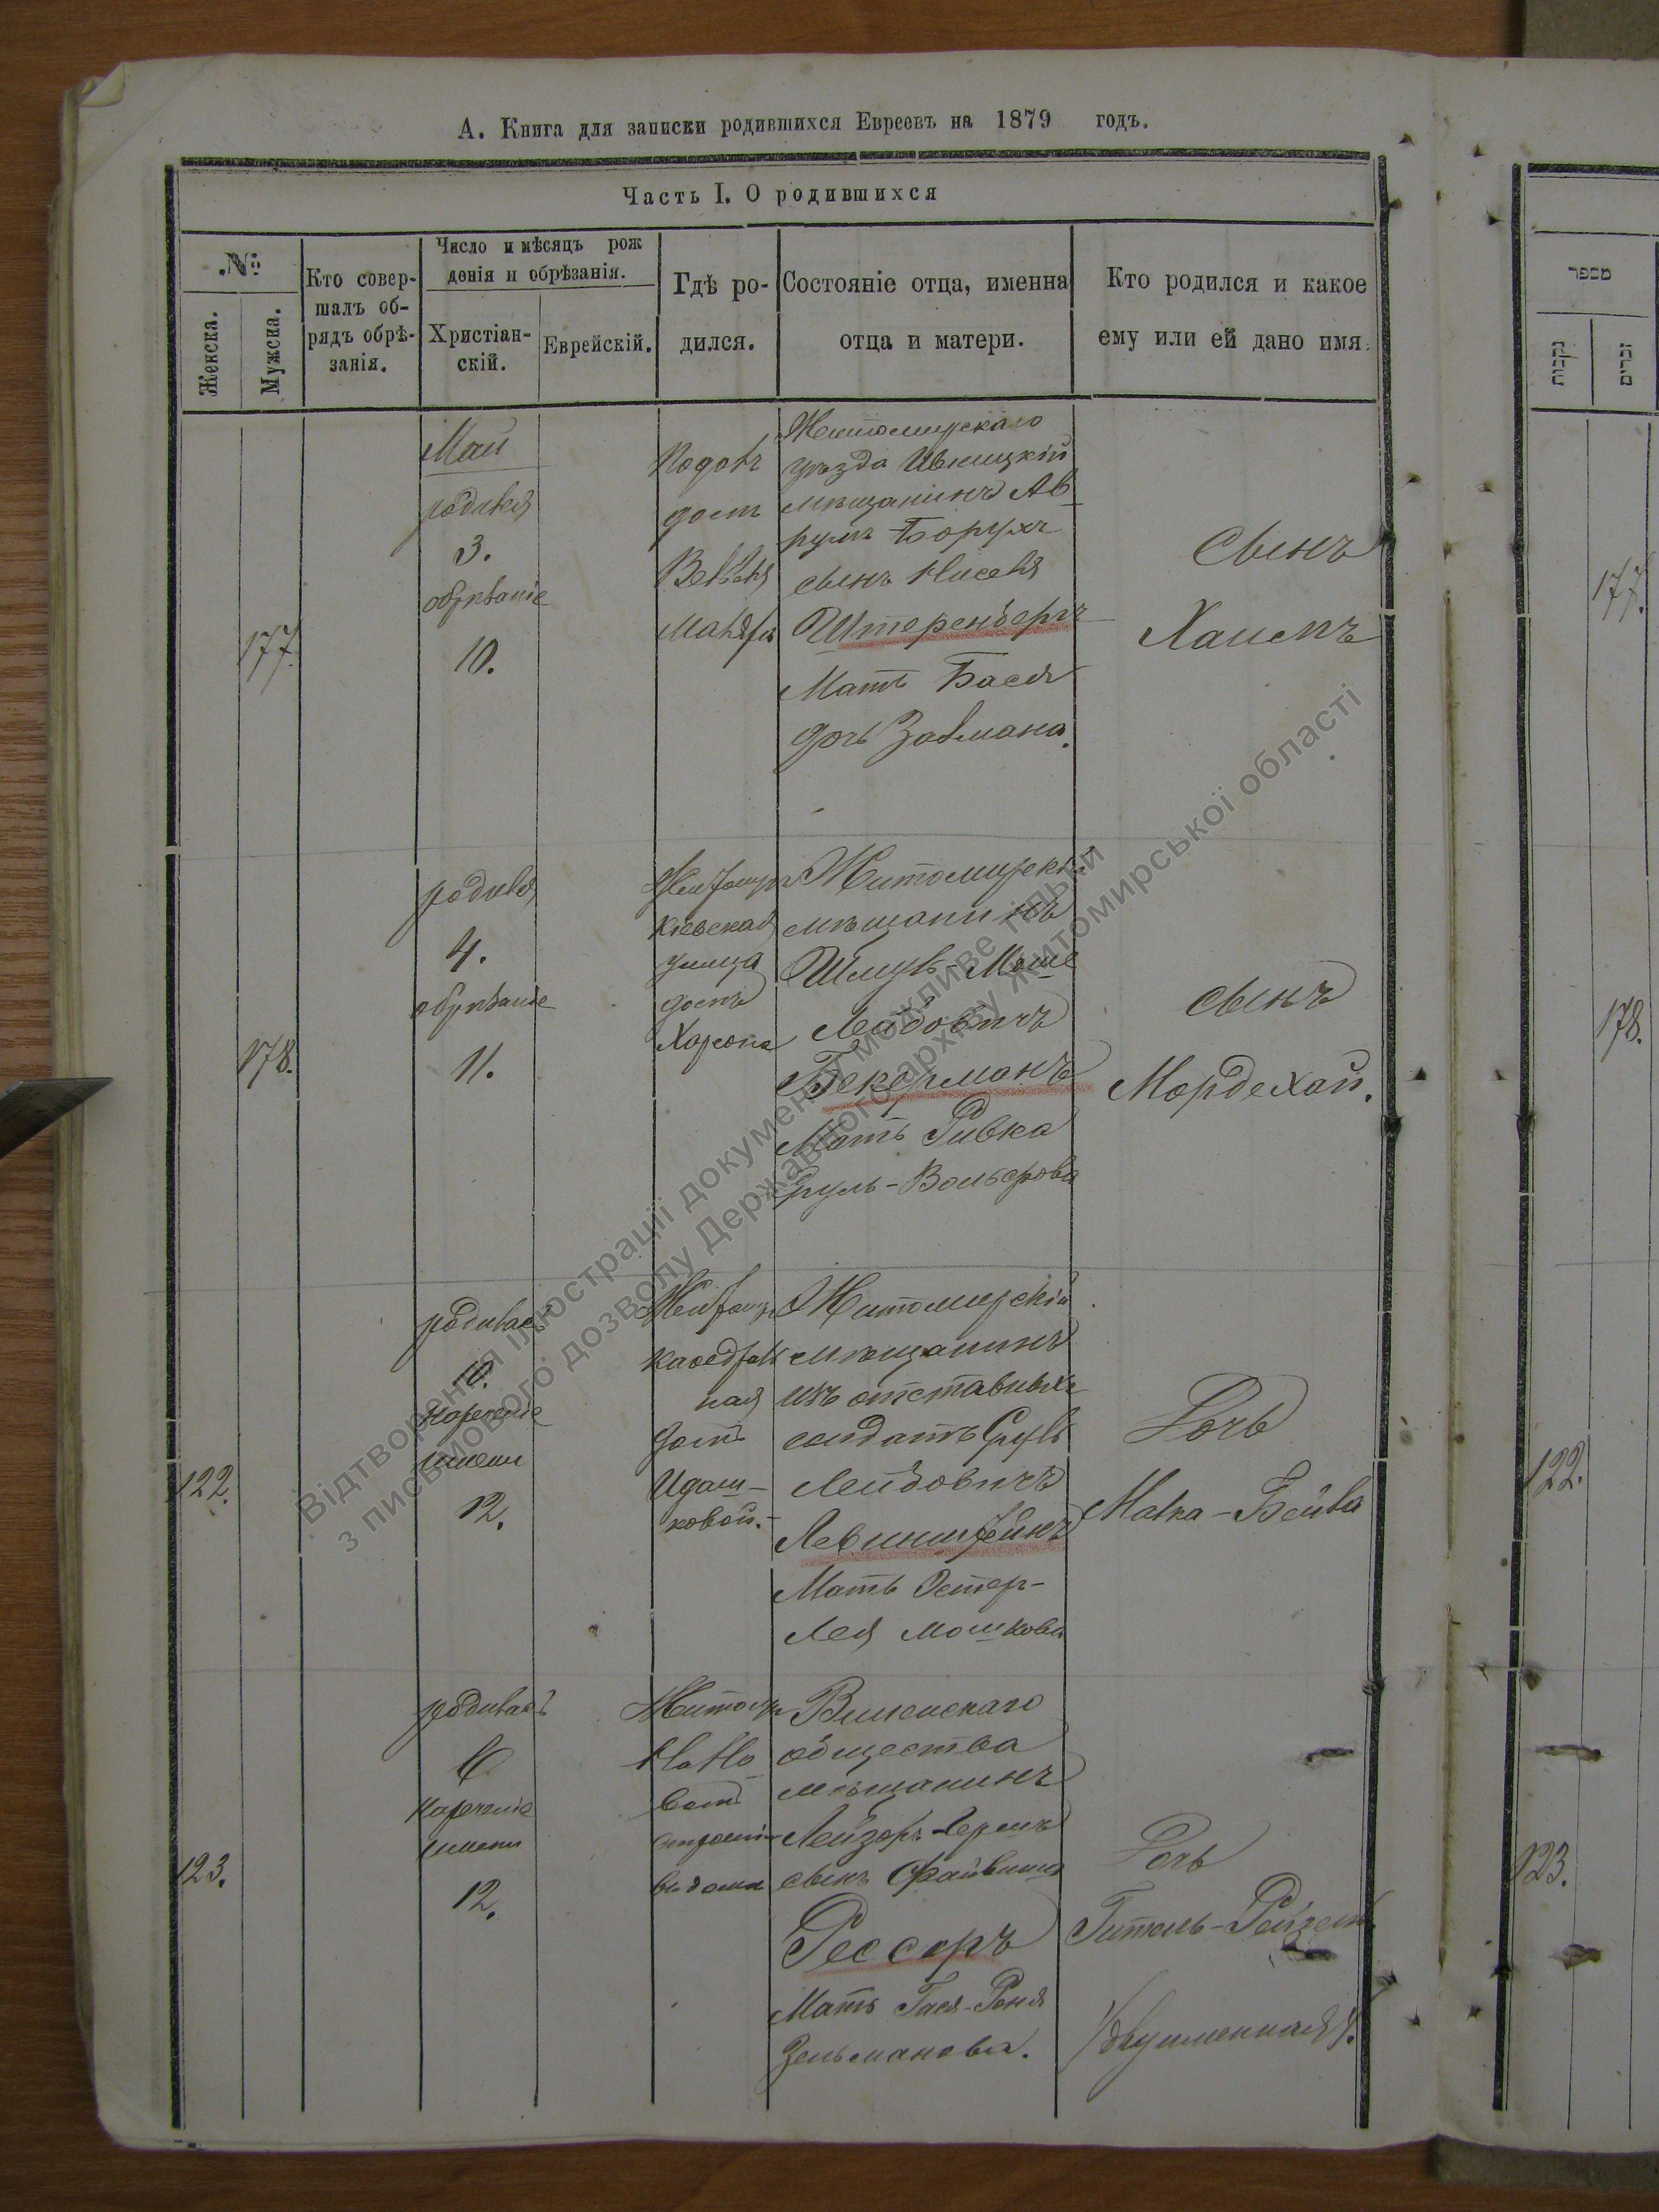 А. Книга для записки родившихся Евреевъ на 1879 годъ.
Часть I. О родившихся
№
Женска.
Мужска.
Кто совер-
шалъ об-
рядъ обрѣ-
занія.
Число и мѣсяцъ рож
денія и обрѣзанія.
Христіан-
скій.
Еврейскій.
Гдѣ ро-
дился.
Состояніе отца, именна
отца и матери.
Кто родился и какое
ему или ей дано имя.
177.
Май
родився
3.
обрѣзаніе
10.
домъ
Житомирскаго
уѣзда Ивницкій
мѣщанинъ Ав
румъ Борухъ
сынъ Нисена
Штеренбергъ
Мать Бася
дочь Залмана.
Сынъ
Хаимъ
178.
родився
4.
обрѣзаніе
11.
Житомиръ
Кіевская
улица
домъ
Житомирскій
мѣщанинъ
Шмуль-Моше
Лейбовичъ
Бекерманъ
Мать Ривка
Сруль-Вольфова
сынъ
Мордехай.
122.
родилась
10.
нареченіе
имени
12.
Житомиръ
Кафедраль
ная
домъ
Идаш-
ковой.
Житомирскій
мѣщанинъ
изъ отставныхъ
солдатъ Сруль
Лейбовичъ
Левинштейнъ
Мать Эстер-
Лея Мошкова
Дочь
Малка-Бейла
123.
родилась
нареченіе
имени
12.
Житомиръ
Виленскаго
общества
мѣщанинъ
Лейзоръ-Беръ
сынъ Файвиша
Рессеръ
Мать Бася-Роня
Зельманова.
Дочь
Гитель-Рейзель
/двуименная/.
מספר
נקבות
זכרים
177.
178.
122.
123.
Відтворення ілюстрації документу можливе тільки
з письмового дозволу Державного архіву Житомирської області